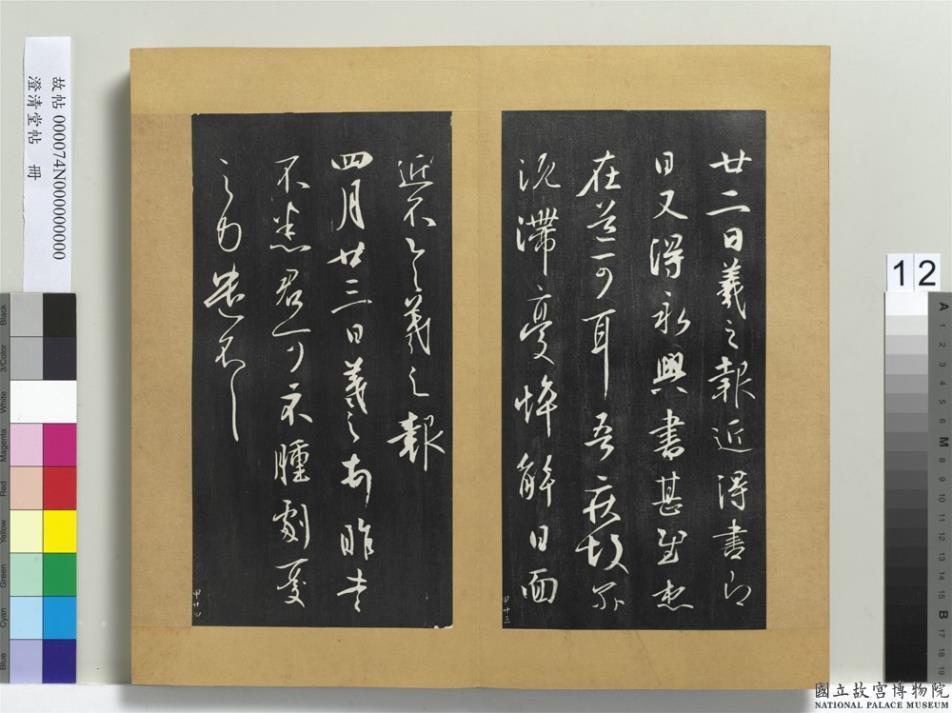 廿二日羲之報近得書即
日又得永興書甚慰想
在道可耳吾疾故爾
沉滯憂悴解日面
近不具羲之報
四月廿三日羲之頓首昨書
不悉君可不腫劇憂
之力遣不具
甲十三
故帖 000074N000000000
澄清堂帖 冊
12
Black
3/Color
White
Magenta
Red
Yellow
Green
Cyan
Blue
A
1
2
3
4
5
6
M
8
9
10
11
12
13
14
15
B
17
18
19
國立故宮博物院
NATIONAL PALACE MUSEUM